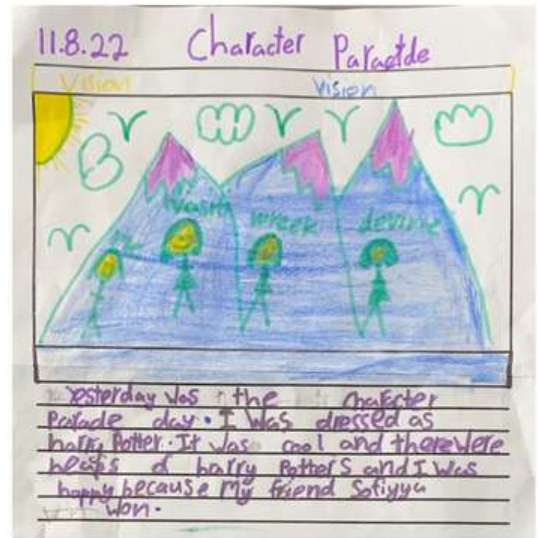 11.8.22 Character Paraetde
Vision Vision
me
wreek devine
Yesterday was the character
Parade day. I was dressed as
harry Potter. It was cool and there were
heaps of harry Potters and I was
happy because my friend Sofiyya
won.